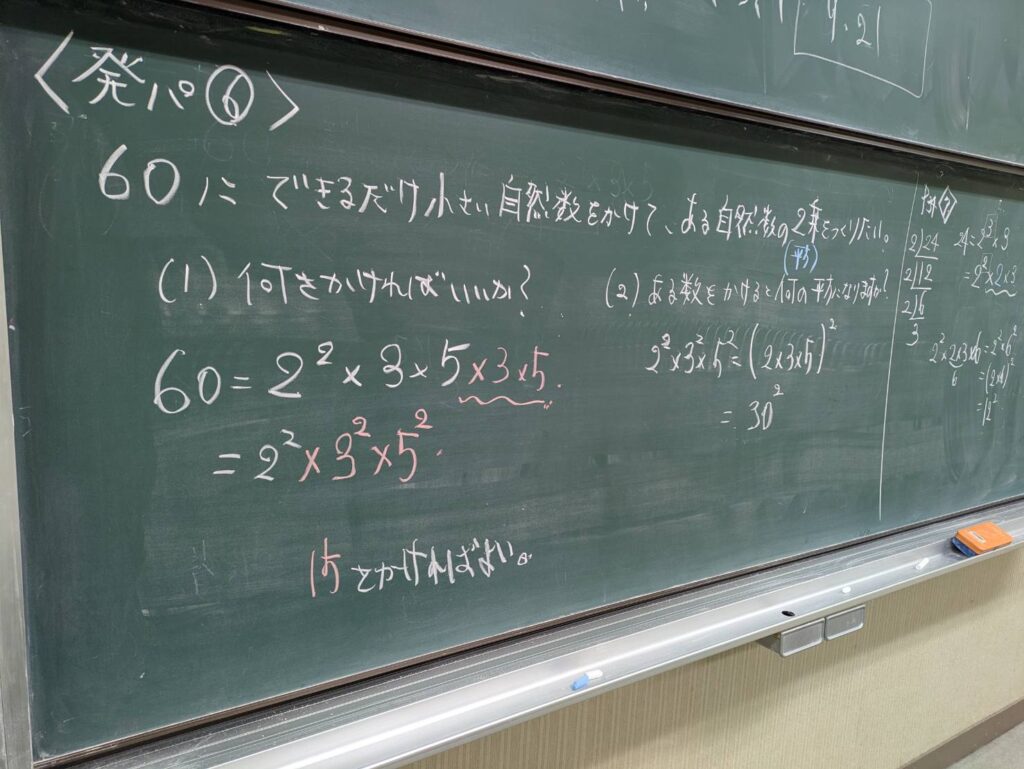 9.21
〈発パ⑥〉
60に できるだけ小さい自然数をかけて、ある自然数の2乗をつくりたい。
(平方)
(1) 何をかければいいか?
60 = 2² × 3 × 5 × 3 × 5.
= 2² × 3² × 5².
15をかければよい。
(2) ある数をかけると何の平方になりますか?
2² × 3² × 5² = (2×3×5)²
= 30²
2 24
2 12
2 6
3
24 = 2³ × 3
= 2² × 2 × 3
2² × 2×3×6 = 2² × 6²
6
= (2×6)²
= 12²